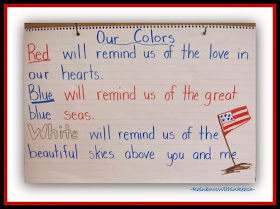 Our Colors
Red will remind us of the love in
our hearts.
Blue will remind us of the great
blue seas.
White will remind us of the
beautiful skies above you and me
~RainbowsWithinReach~